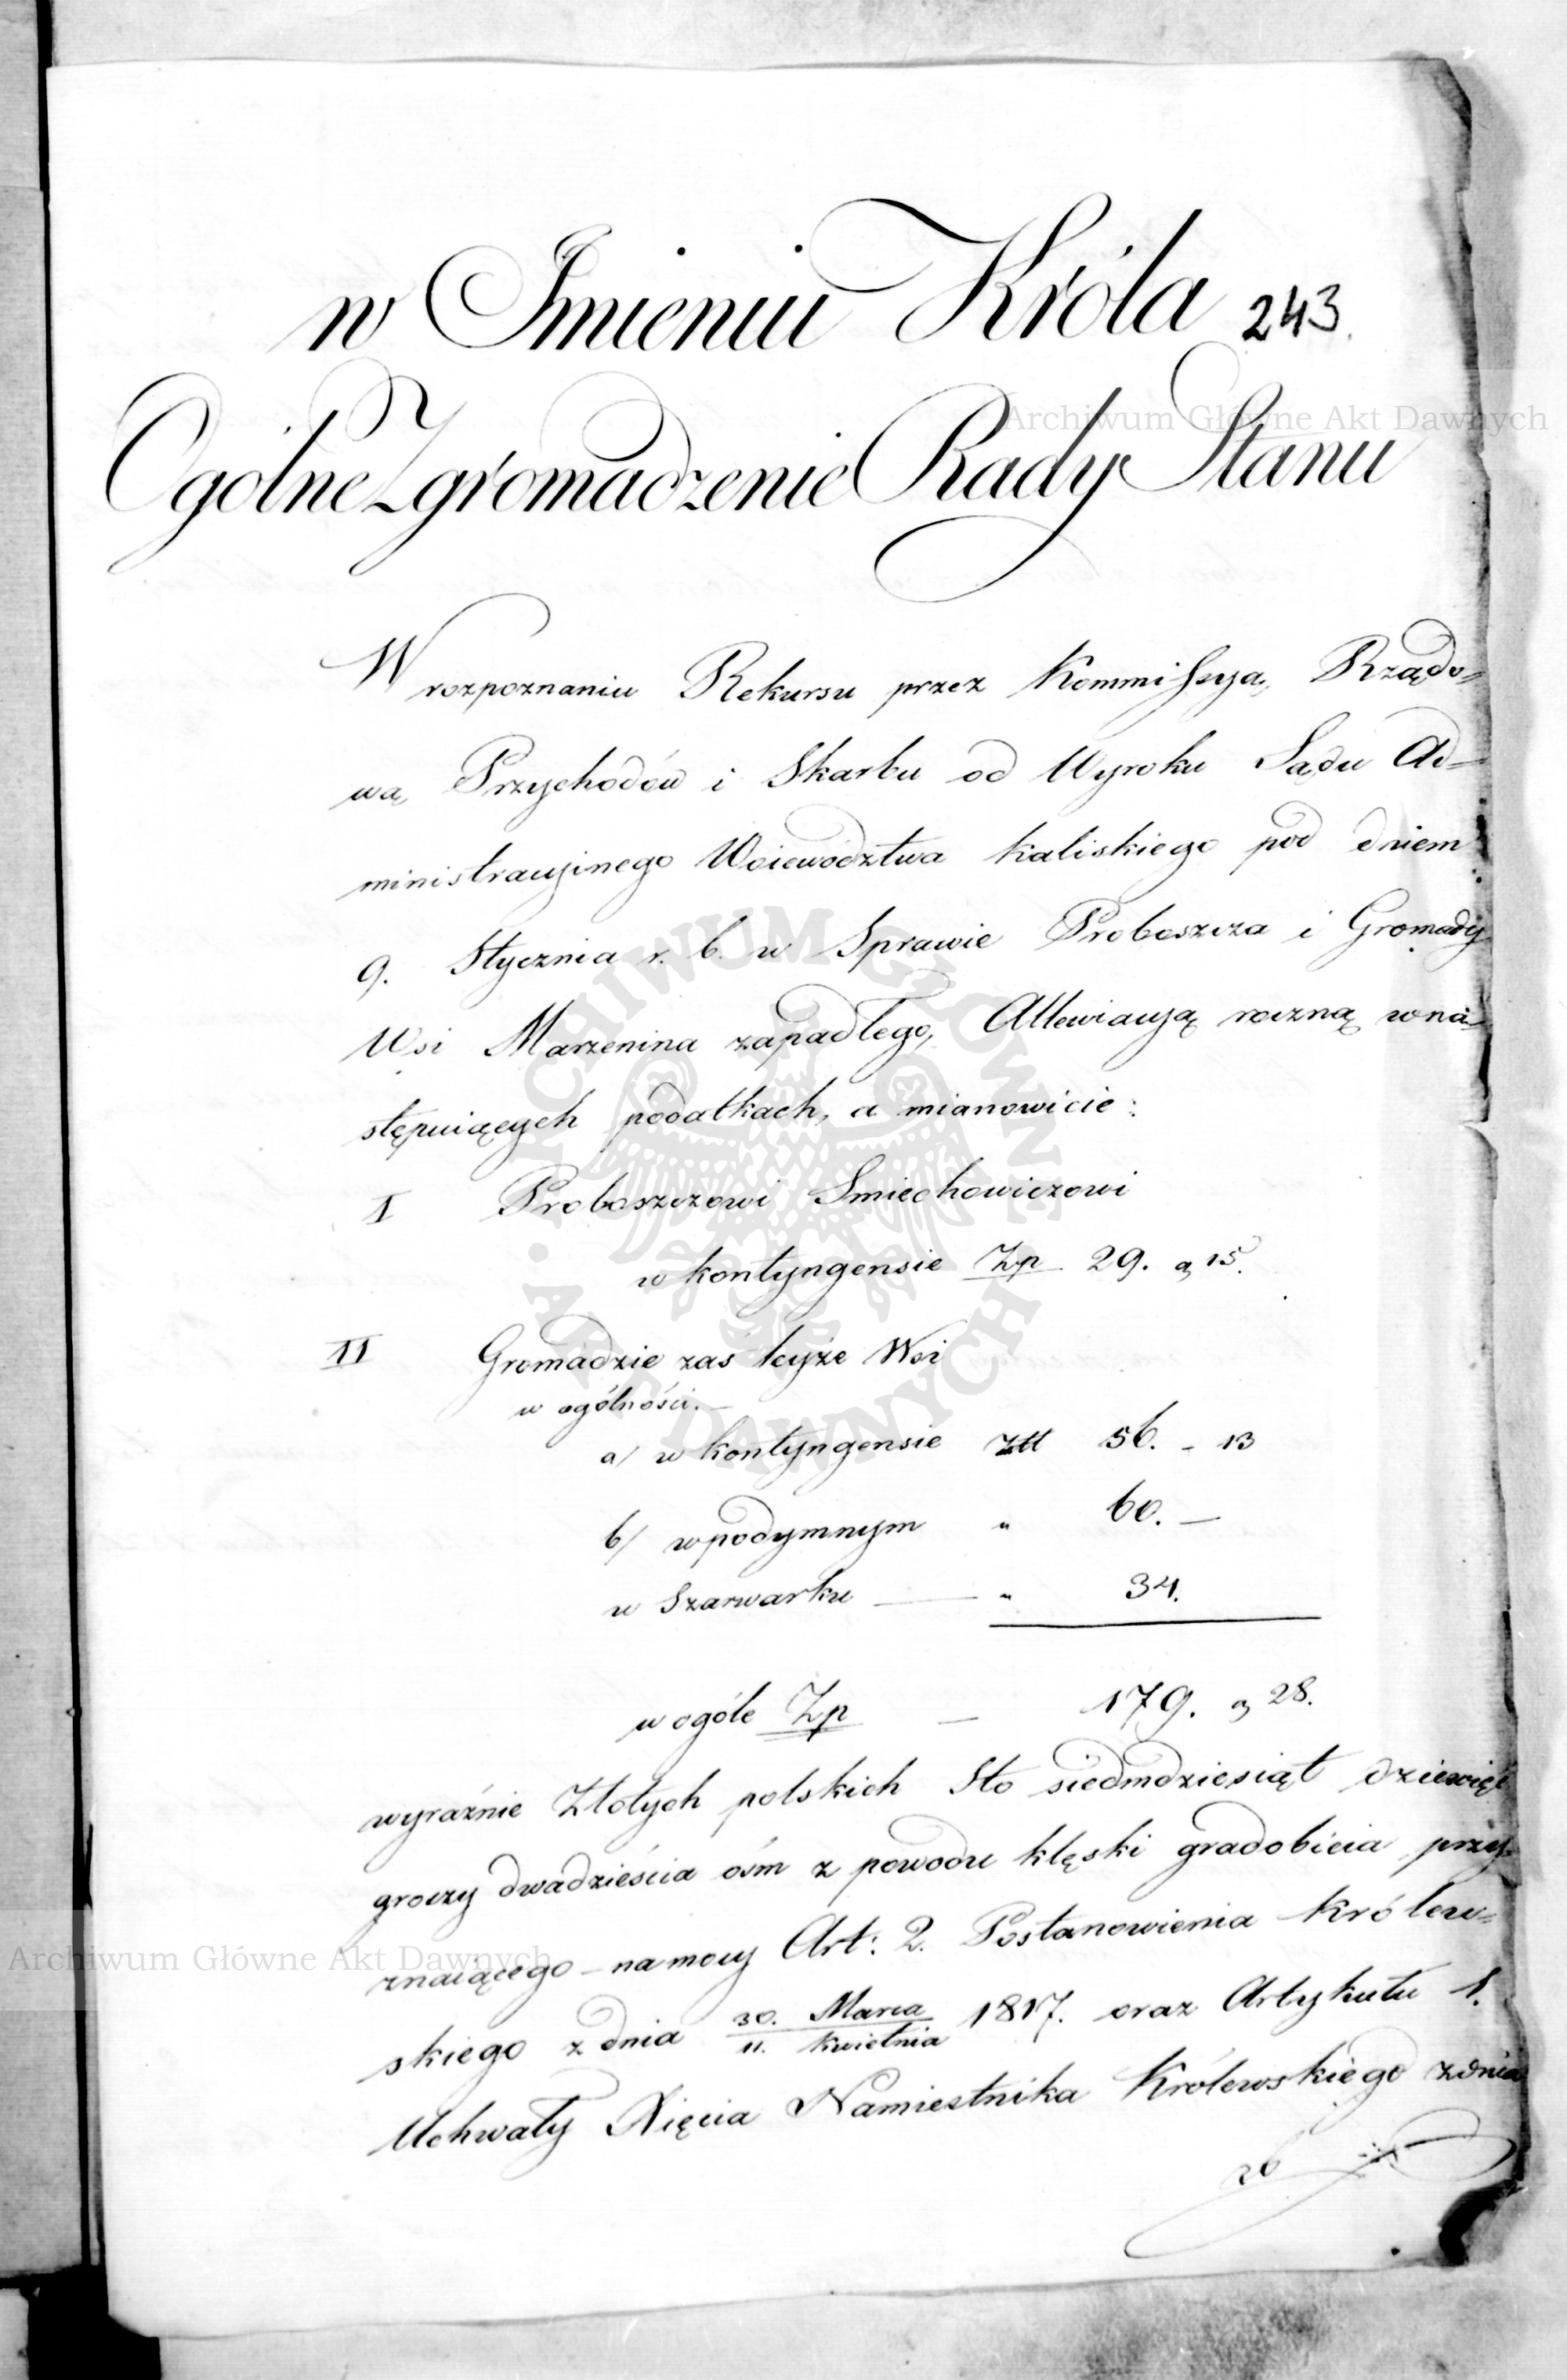 w Imieniu Króla 243.
Ogólne Zgromadzenie Rady Stanu
Archiwum Główne Akt Dawnych
W rozpoznaniu Rekursu przez Kommissyą Rządo=
wą Przychodów i Skarbu od Wyroku Sądu Ad=
ministracyinego Woiewództwa kaliskiego pod dniem
9. Stycznia r. b. w Sprawie Proboszcza i Gromady
Wsi Marzenina zapadłego, Allewiacyą roczną w na=
stępuiących podatkach, a mianowicie:
I Proboszczowi Smiechowiczowi
w kontyngensie Zp 29. g 15.
II Gromadzie zaś teyże Wsi
w ogólności.—
a/ w kontyngensie Złł 56. - 13
b/ w podymnym " 60. —
w Szarwarku — " 34.
w ogóle Zp — 179. g 28.
wyraźnie Złotych polskich Sto siedmdziesiąt dziewięć
groszy dwadzieścia ośm z powodu klęski gradobicia przy=
znaiącego – na mocy Art: 2. Postanowienia Królew=
skiego z dnia 30. Marca / 11. Kwietnia 1817. oraz Artykułu 1.
Uchwały Xięcia Namiestnika Królewskiego z dnia
26
Archiwum Główne Akt Dawnych
ARCHIWUM GŁÓWNE · AKT DAWNYCH ·